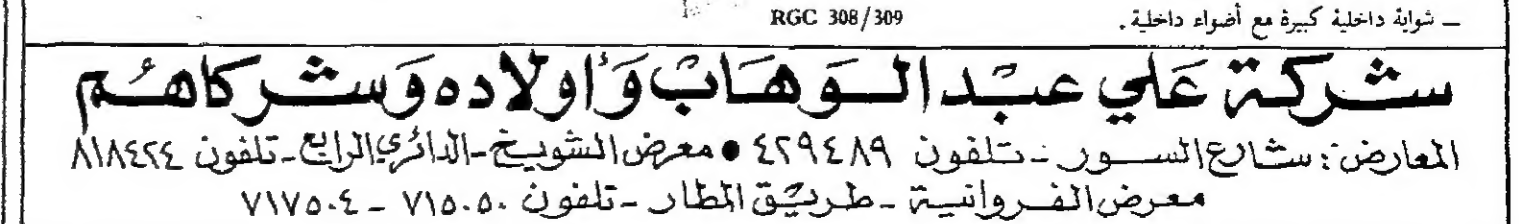 ــ شواية داخلية كبيرة مع أضواء داخلية . RGC 308/309
شركة علي عبد الوهاب وأولاده وشركاهم
المعارض: شارع السور - تلفون ٤٢٩٤٨٩ ● معرض الشويخ - الدائري الرابع - تلفون ٨١٨٤٢٤
معرض الفروانية - طريق المطار - تلفون ٧١٥٠٥٠ - ٧١٧٥٠٤